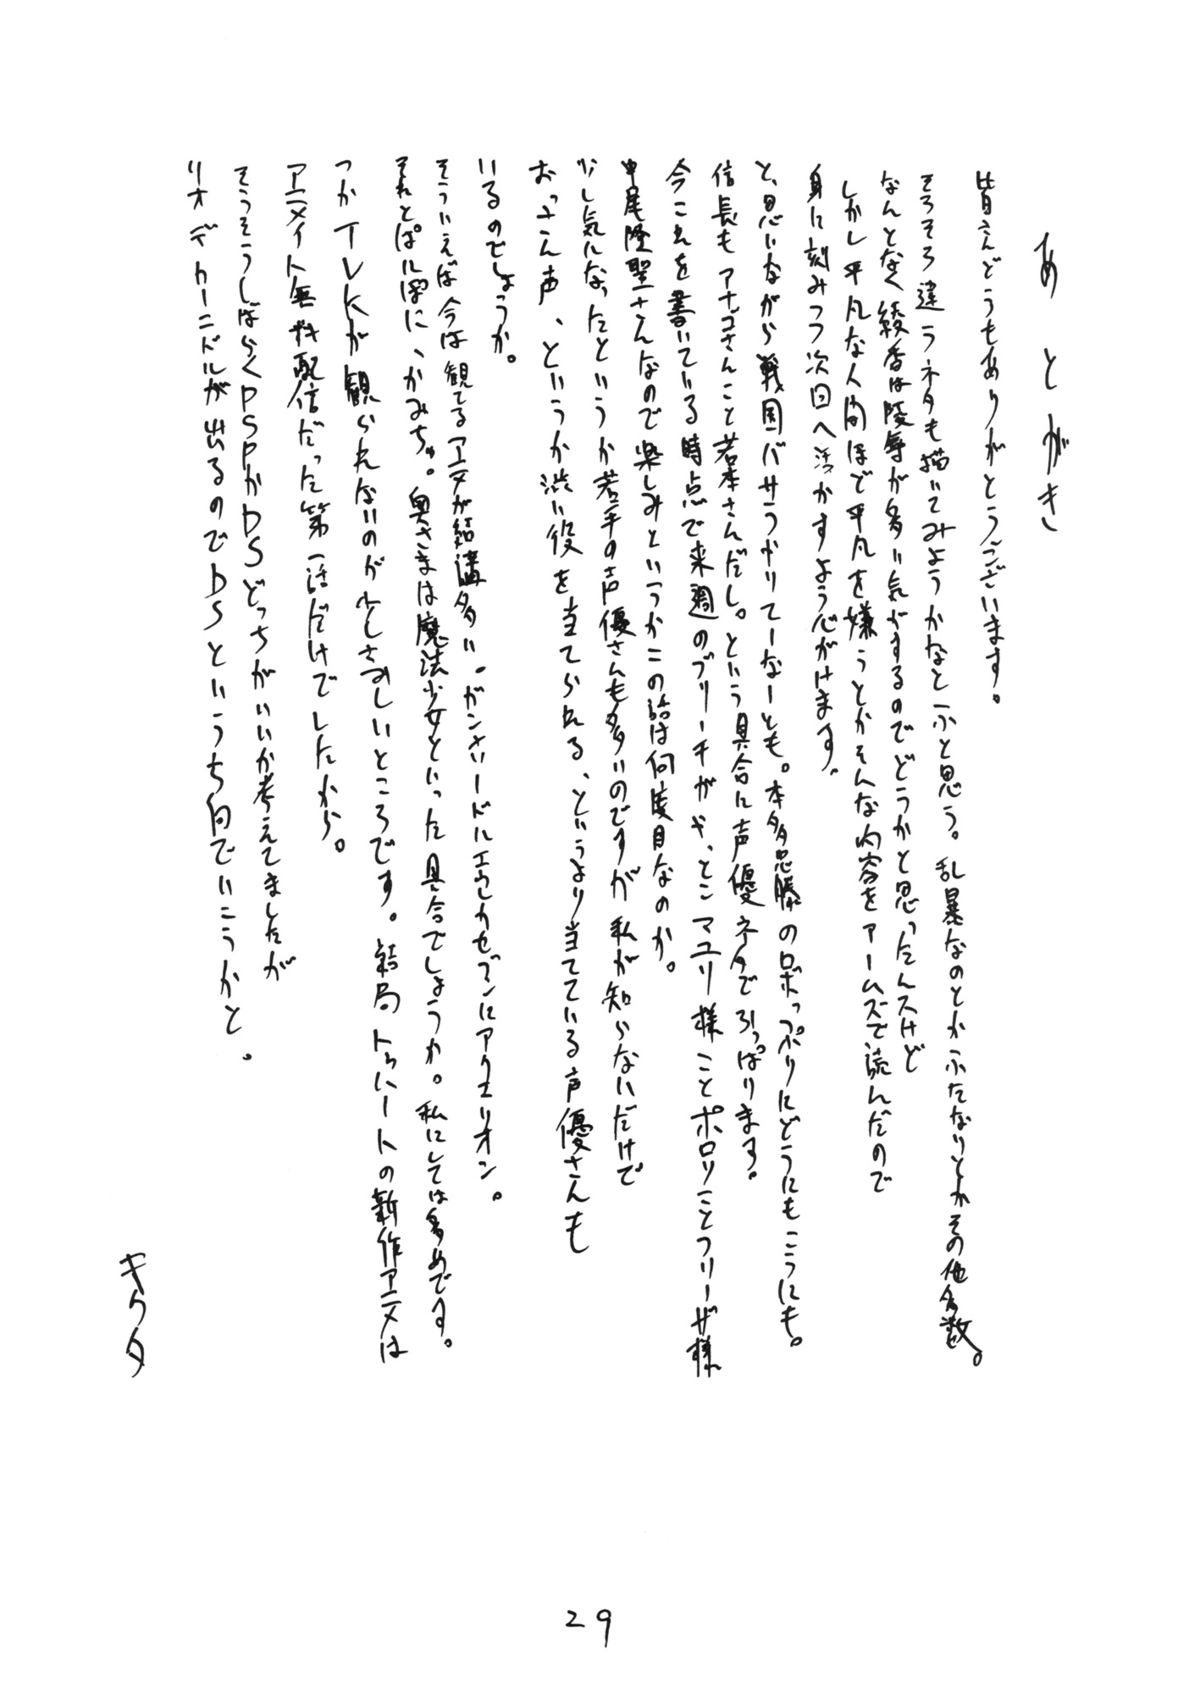 あとがき
皆さんどうもありがとうございます。
そろそろ違うネタも描いてみようかなとふと思う。乱暴なのとかふたなりとかその他多数。
なんとなく綾香は陵辱が多い気がするのでどうかと思ったんスけど
しかし平凡な人間ほど平凡を嫌うとかそんな内容をアームズで読んだので
身に刻みつつ次回へ活かすよう心がけます。
と、思いながら戦国バサラかりてーなーとも。本多忠勝のロボっぷりにどうにもこうにも。
信長もアナゴさんこと若本さんだし。という具合に声優ネタで引っぱります。
今これを書いている時点で来週のブリーチがや、とこマユリ様ことポロリことフリーザ様
中尾隆聖さんなので楽しみというかこの話は何度目なのか。
少し気になったというか若手の声優さんも多いのですが私が知らないだけで
おっさん声、というか渋い役を当てられる、というより当てている声優さんも
いるのでしょうか。
そういえば今は観てるアニメが結構多い。ガンソードにエウレカセブンにアクエリオン。
それとぱにぽに、かみちゅ。奥さまは魔法少女といった具合でしょうか。私にしては多めです。
つかTVKが観られないのが少しさみしいところです。結局トゥハートの新作アニメは
アニメイト無料配信だった第一話だけでしたから。
そうそうしばらくPSPかDSどっちがいいか考えてましたが
リオデカーニバルが出るのでDSというち向でいこうかと。
キクタ
29